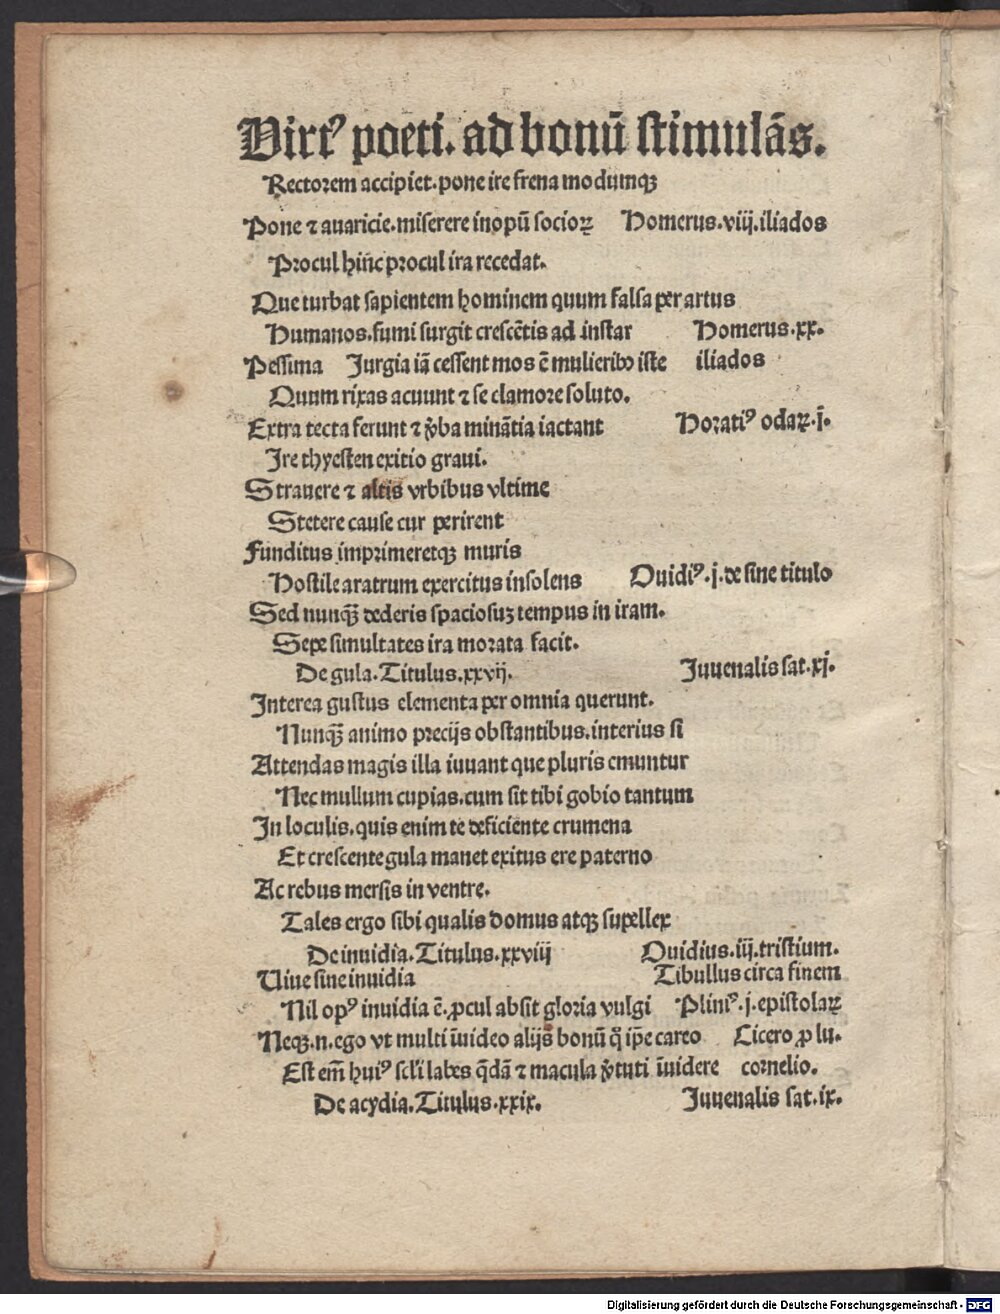 Virtꝰ poeti. ad bonū stimulās.
Rectorem accipiet. pone ire frena modumqꝫ
Pone ⁊ auaricie. miserere inopū socioꝝ Homerus. viij. iliados
Procul hiñc procul ira recedat.
Que turbat sapientem hominem quum falsa per artus
Humanos. fumi surgit crescētis ad instar Homerus. xx.
Pessima Jurgia iā cessent mos ē mulieribꝰ iste iliados
Quum rixas acuunt ⁊ se clamore soluto.
Extra tecta ferunt ⁊ v̾ba minātia iactant Horatiꝰ odaꝝ. j̄.
Ire thyesten exitio graui.
Strauere ⁊ altis vrbibus vltime
Stetere cause cur perirent
Funditus imprimeretqꝫ muris
Hostile aratrum exercitus insolens Ouidiꝰ. j. de sine titulo
Sed nunqꝫ̄ dederis spaciosuꝫ tempus in iram.
Sepe simultates ira morata facit.
De gula. Titulus. xxvij. Juuenalis sat. xj.
Interea gustus elementa per omnia querunt.
Nunqꝫ̄ animo precijs obstantibus. interius si
Attendas magis illa iuuant que pluris emuntur
Nec mullum cupias. cum sit tibi gobio tantum
In loculis. quis enim te deficiente crumena
Et crescente gula manet exitus ere paterno
Ac rebus mersis in ventre.
Tales ergo sibi qualis domus atqꝫ supellex
De inuidia. Titulus. xxviij Ouidius. iij. tristium.
Viue sine inuidia Tibullus circa finem
Nil opꝰ inuidia ē. ꝓcul absit gloria vulgi Pliniꝰ. j. epistolaꝝ
Neqꝫ. n. ego vt multi īuideo alijs bonū q̄ ip̄e careo Cicero ꝓ lu.
Est em̄ huiꝰ scl'i labes q̄dā ⁊ macula v̾tuti īuidere cornelio.
De acydia. Titulus. xxix. Juuenalis sat. ix.
Digitalisierung gefördert durch die Deutsche Forschungsgemeinschaft - DFG